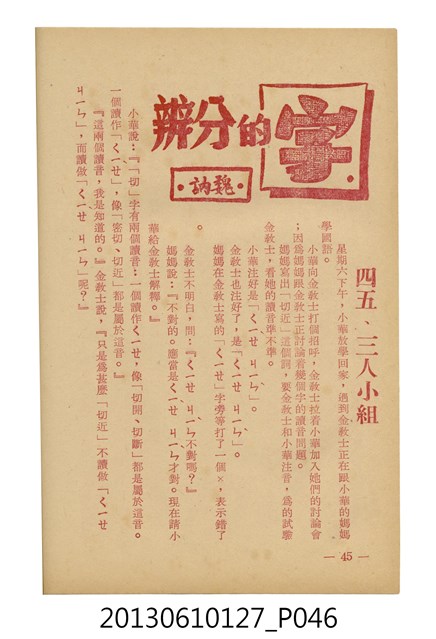 字的分辨
·魏訥·
四五、三人小組
星期六下午，小華放學回家，遇到金敎士正在跟小華的媽媽
學國語。
小華向金敎士打個招呼，金敎士拉着小華加入她們的討論會
；因爲媽媽跟金敎士正討論着幾個字的讀音問題。
媽媽寫出「切近」這個詞，要金敎士和小華注音，爲的試驗
金敎士，看她的讀音準不準。
小華注好是「ㄑㄧㄝˋ ㄐㄧㄣˋ」。
金敎士也注好了，是「ㄑㄧㄝ ㄐㄧㄣˋ」。
媽媽在金敎士寫的「ㄑㄧㄝ」字旁等打了一個×，表示錯了
。
金敎士不明白，問：『ㄑㄧㄝ ㄐㄧㄣˋ不對嗎？』
媽媽說：『不對的。應當是ㄑㄧㄝˋ ㄐㄧㄣˋ才對。現在請小
華給金敎士解釋。』
小華說：『「切」字有兩個讀音：一個讀作ㄑㄧㄝ，像「切開、切斷」都是屬於這音。
一個讀作「ㄑㄧㄝˋ」，像「密切、切近」都是屬於這音。』
『這兩個讀音，我是知道的。』金敎士說，『只是爲甚麼「切近」不讀做「ㄑㄧㄝ
ㄐㄧㄣˋ」，而讀做「ㄑㄧㄝˋ ㄐㄧㄣˋ」呢？』
— 45 —
20130610127_P046